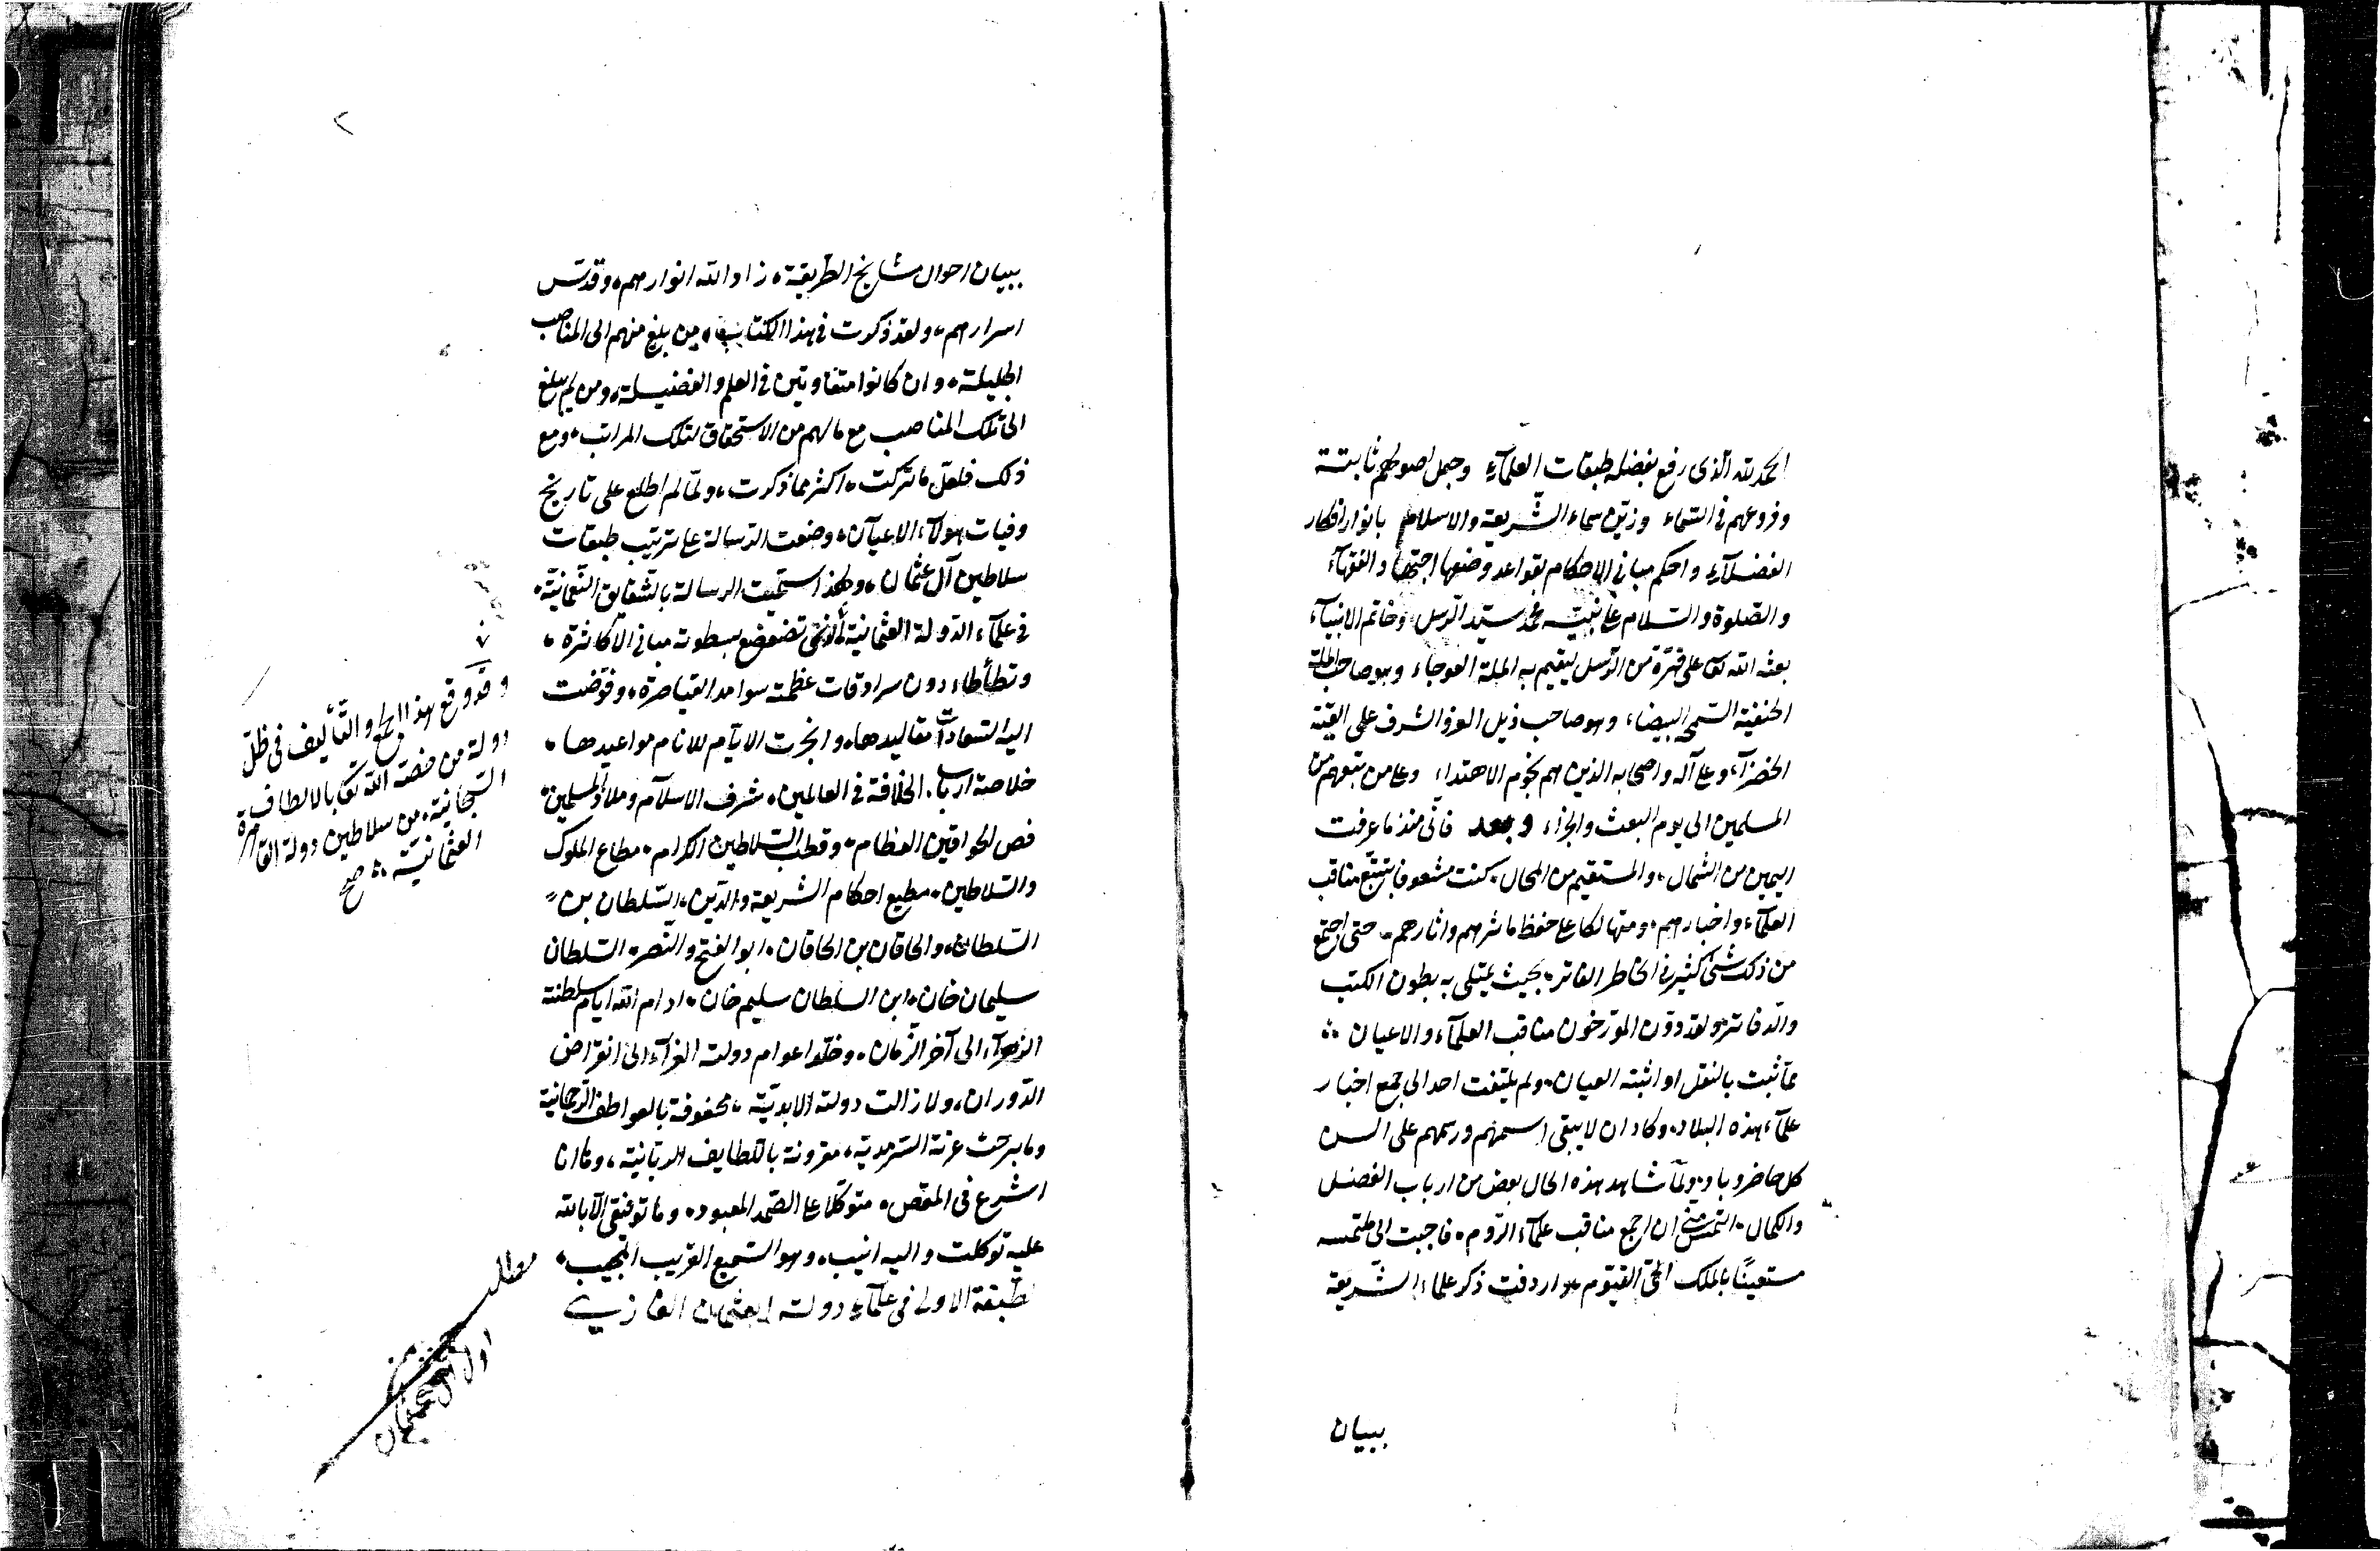 الحمد لله الذى رفع بفضله طبقات العلمآء وجعل اصولهم ثابتة
وفروعهم فى السماء وزين سماء الشريعة والاسلام بانوار افكار
الفضلآء واحكم مبانى الاحكام بقواعد وضعها اجتهاد الفقهآء
والصلوة والسلام على نبيه محمد سيد الرسل وخاتم الانبيآء
بعثه الله تعالى على فترة من الرسل ليقيم به الملة العوجاء وهو صاحب الملة
الحنفية السمحة البيضاء وهو صاحب ذيل العز والشرف على القبة
الخضرآء وعلى آله واصحابه الذين هم نجوم الاهتداء وعلى من تبعهم من
المسلمين الى يوم البعث والجزاء وبعد فانى منذ ما عرفت
اليمين من الشمال والمستقيم من المحال كنت مشعوفا بتتبع مناقب
العلمآء واخبارهم ومتهالكا على حفظ مآثرهم واثارهم حتى اجتمع
من ذلك شئ كثير فى الخاطر الفاتر بحيث يمتلى به بطون الكتب
والدفاتر ولقد دون المؤرخون مناقب العلمآء والاعيان
مما ثبت بالنقل او اثبته العيان ولم يلتفت احد الى جمع اخبار
علمآء هذه البلاد وكاد ان لا يبقى اسمهم ورسمهم على السن
كل حاضر وباد ولما شاهد هذه الحال بعض من ارباب الفضل
والكمال التمس منى ان اجمع مناقب علمآء الروم فاجبت الى ملتمسه
مستعينا بالملك الحى القيوم واردفت ذكر علماء الشريعة
ببيان
٢
ببيان احوال مشايخ الطريقة زاد الله انوارهم وقدس
اسرارهم ولقد ذكرت فى هذا الكتاب من بلغ منهم الى المناصب
الجليلة وان كانوا متفاوتين فى العلم والفضيلة ومن لم يبلغ
الى تلك المناصب مع ما لهم من الاستحقاق لتلك المراتب ومع
ذلك فلعل ما تركت اكثر مما ذكرت ولما لم اطلع على تاريخ
وفيات هولاء الاعيان وضعت الرسالة على ترتيب طبقات
سلاطين آل عثمان ولهذا سميت الرسالة بالشقايق النعمانية
فى علمآء الدولة العثمانية تضعضع بسطوته مبانى الاكاسرة
وتطأطاء دون سرادقات عظمته سوامد القياصرة وفوضت
اليه السعادات مقاليدها وانجزت الايام للانام مواعيدها
خلاصة ارباب الخلافة فى العالمين شرف الاسلام وملاذ المسلمين
فص الخواقين العظام وقطب السلاطين الكرام مطاع الملوك
والسلاطين مطيع احكام الشريعة والدين السلطان بن
السلطان والخاقان بن الخاقان ابو الفتح والنصر السلطان
سليمان خان ابن السلطان سليم خان ادام الله ايام سلطنته
الزهرآء الى آخر الزمان وخلد اعوام دولته الغرآء الى انقراض
الدوران ولا زالت دولته الابدية محفوفة بالعواطف الرحمانية
وما برحت عزته السرمدية مقرونة باللطايف الربانية وها انا
اشرع فى المقص متوكلا على الصمد المعبود وما توفيقى الا بالله
عليه توكلت واليه انيب وهو السميع القريب المجيب
الطبقة الاولى فى علمآء دولة عثمان الغازى
وقد وقع هذا الجمع والتأليف فى ظل
دولة من خصه الله تعالى بالالطاف
السبحانية من سلاطين دولة القاهرة
العثمانية صح
مطلب
اول آل عثمان